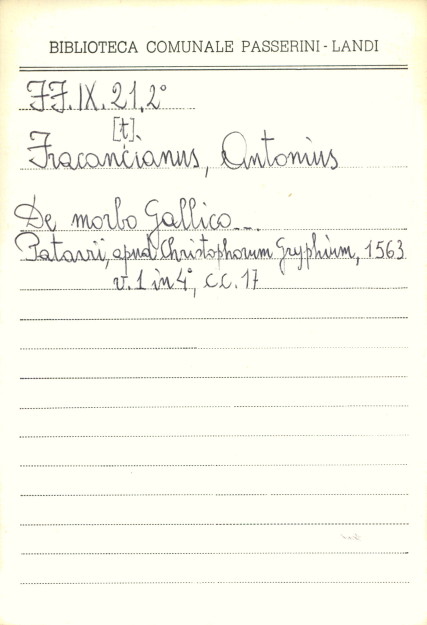 BIBLIOTECA COMUNALE PASSERINI - LANDI
FF.IX.21,2°
[t]
Fracancianus, Antonius
De morbo Gallico...
Patavii, apud Christophorum Gryphium, 1563
v. 1 in 4°, cc. 17